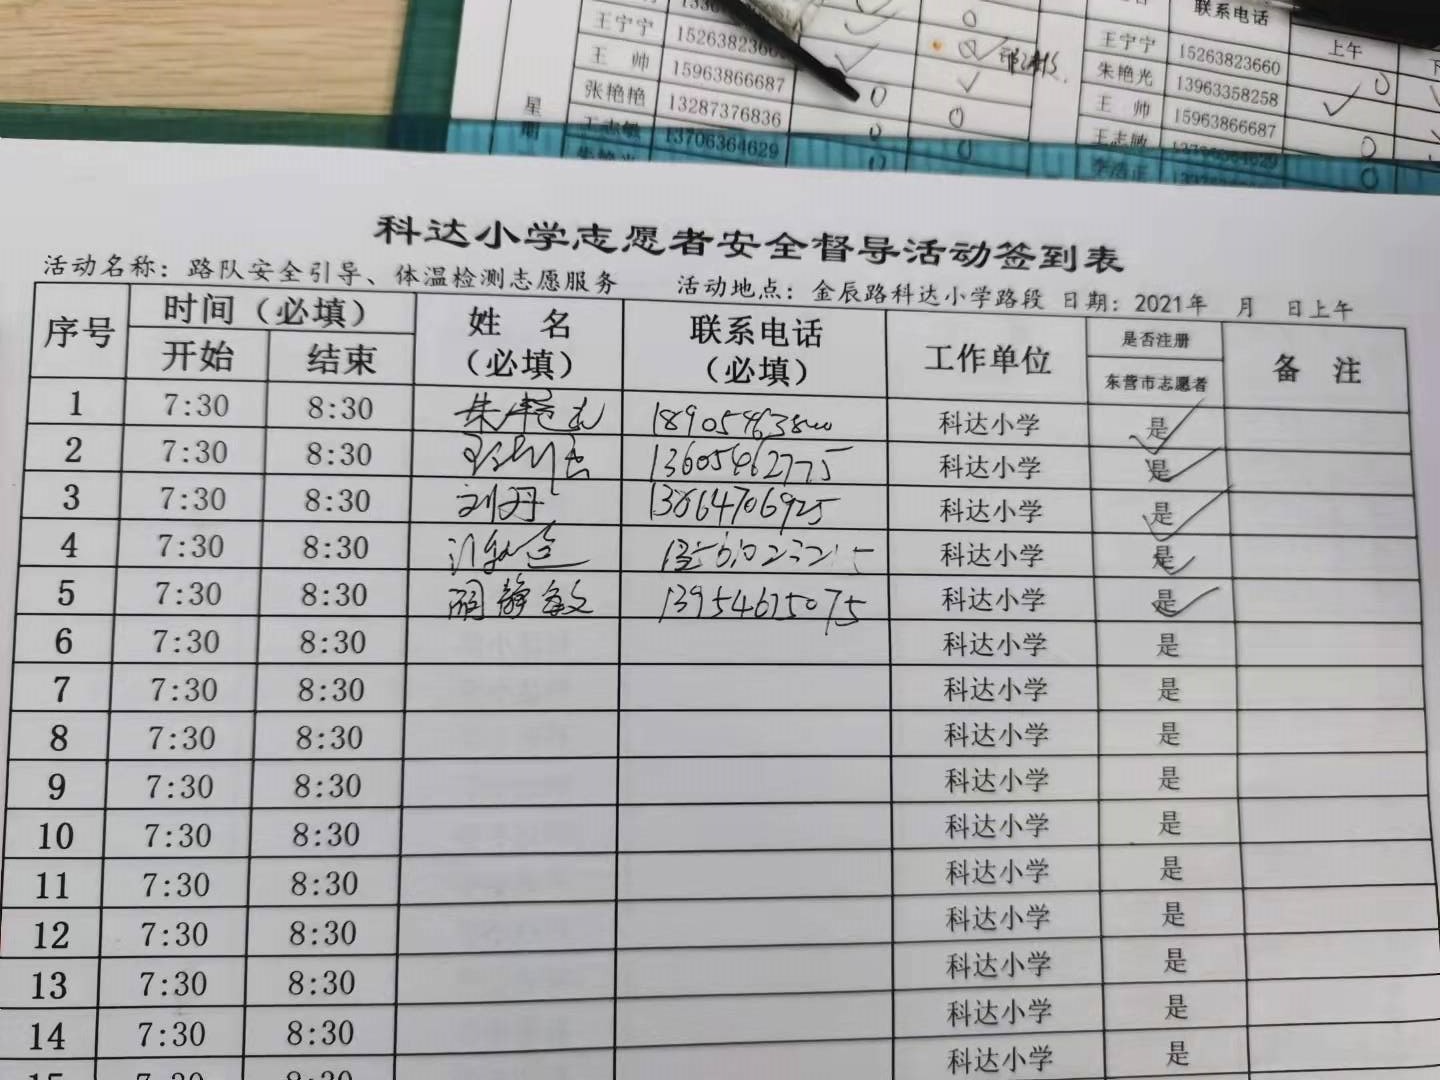 王宁宁 15263823660
王 帅 15963866687
张艳艳 13287376836
王志敏 13706364629
朱艳光
星期
联系电话
上午
王宁宁 15263823660
朱艳光 13963358258
王 帅 15963866687
王志敏 13706364629
科达小学志愿者安全督导活动签到表
活动名称：路队安全引导、体温检测志愿服务 活动地点：金辰路科达小学路段 日期：2021年 月 日上午
序号 时间（必填） 姓 名（必填） 联系电话（必填） 工作单位 是否注册 备 注
开始 结束 东营市志愿者
1 7:30 8:30 科达小学 是
2 7:30 8:30 13605462775 科达小学 是
3 7:30 8:30 刘丹 13864706925 科达小学 是
4 7:30 8:30 科达小学 是
5 7:30 8:30 静敏 13954675075 科达小学 是
6 7:30 8:30 科达小学 是
7 7:30 8:30 科达小学 是
8 7:30 8:30 科达小学 是
9 7:30 8:30 科达小学 是
10 7:30 8:30 科达小学 是
11 7:30 8:30 科达小学 是
12 7:30 8:30 科达小学 是
13 7:30 8:30 科达小学 是
14 7:30 8:30 科达小学 是
15 7:30 8:30 科达小学 是